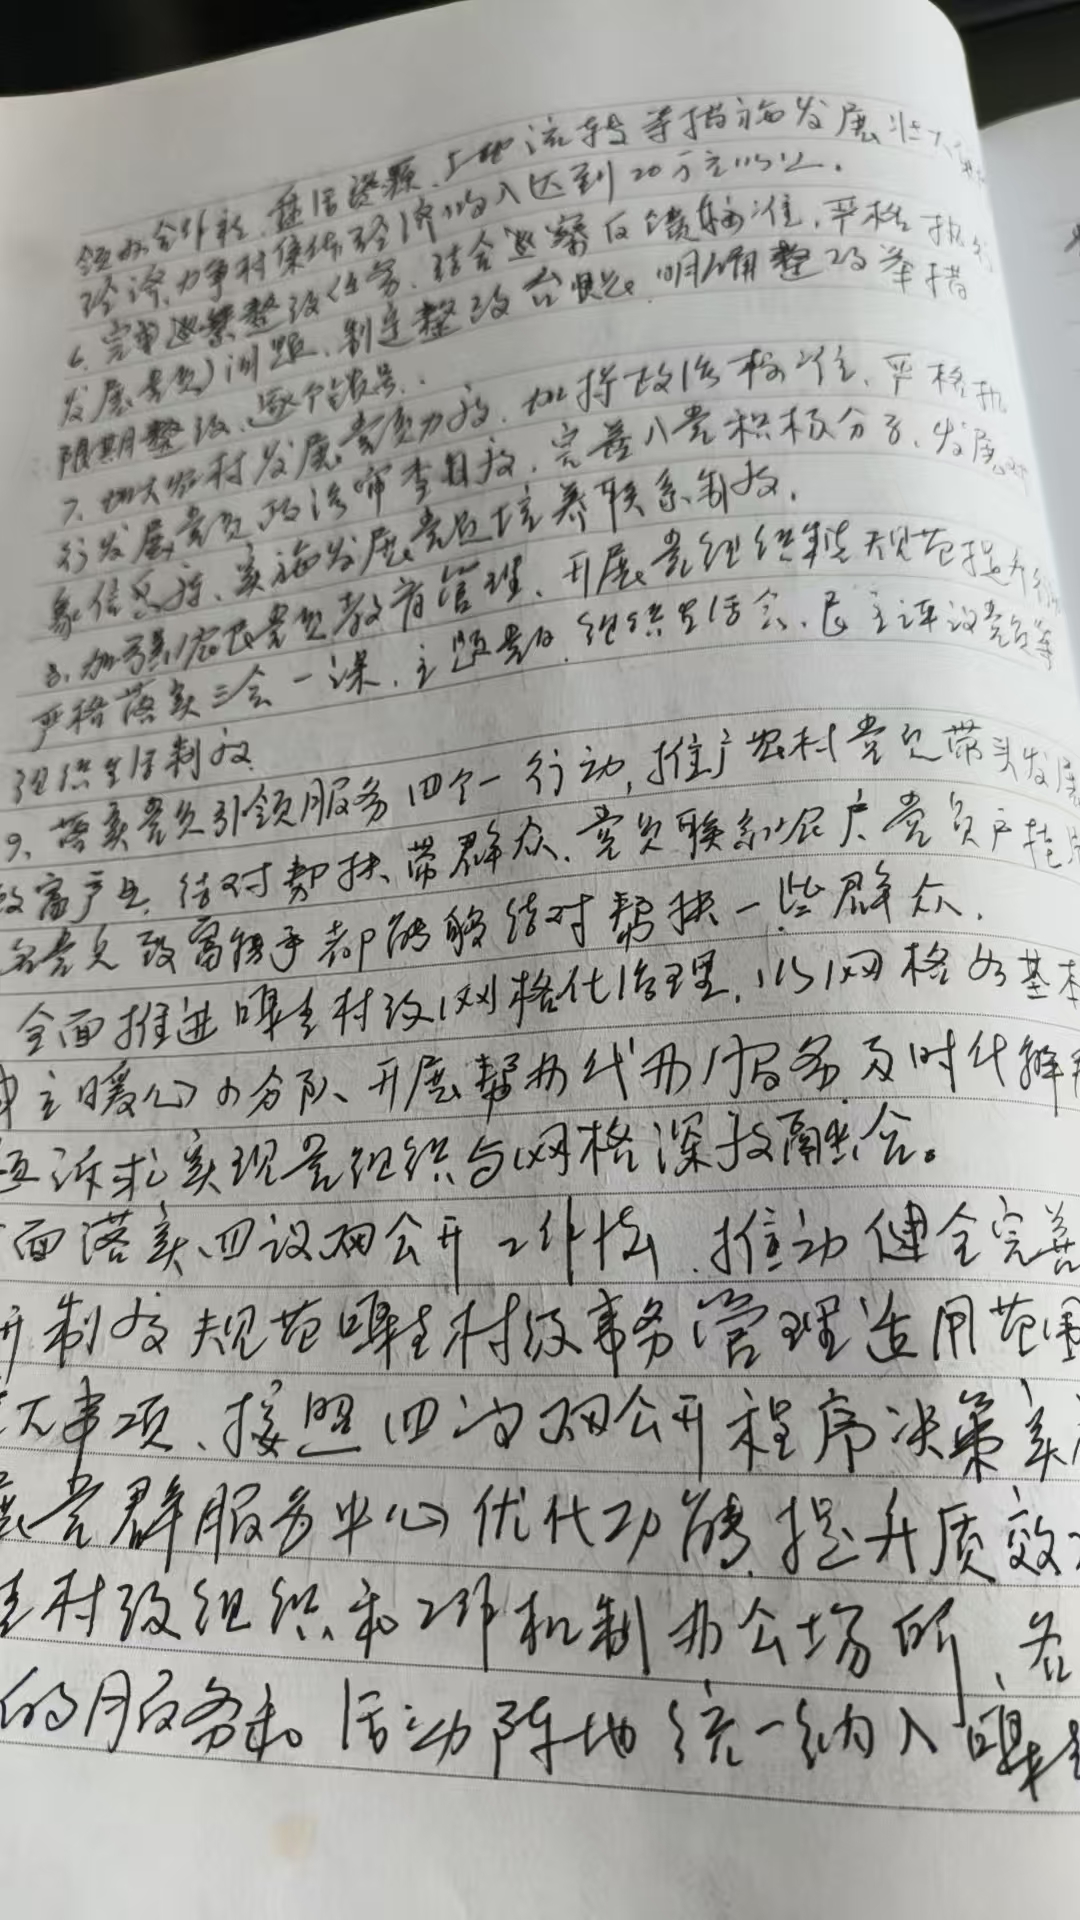 领办合作社、盘活资源、土地流转等措施发展壮大
经济,力争村集体经济收入达到20万元以上.
6、完善巡察整改任务、结合巡察反馈标准,严格执行
发展党员)问题、制定整改台账,明确整改举措
限期整改、逐个销号.
7、加大农村发展党员力度、加持政治标准、严格执
行发展党员政治审查制度、完善入党积极分子、发展对
象信息库、实施发展党员培养联系制度.
8、加强农民党员教育管理、开展党组织规范提升行动
严格落实三会一课、主题党日、组织生活会、民主评议党员等
组织生活制度
9、落实党员引领服务四个一行动,推广农村党员带头发展
致富产业、结对帮扶带群众、党员联系农户、党员户挂牌
名党员致富能手都能够结对帮扶一些群众.
全面推进嘎查村级网格化治理,以网格为基本
主暖心小分队、开展帮办代办服务及时代解
诉求实现党组织与网格深度融合。
面落实四议两公开工作法.推动健全完善
开制度规范嘎查村级事务管理适用范围
大事项、按照四议两公开程序决策实
党群服务中心优化功能提升质效
查村级组织和工作机制办公场所、各
的服务和活动阵地统一纳入嘎查